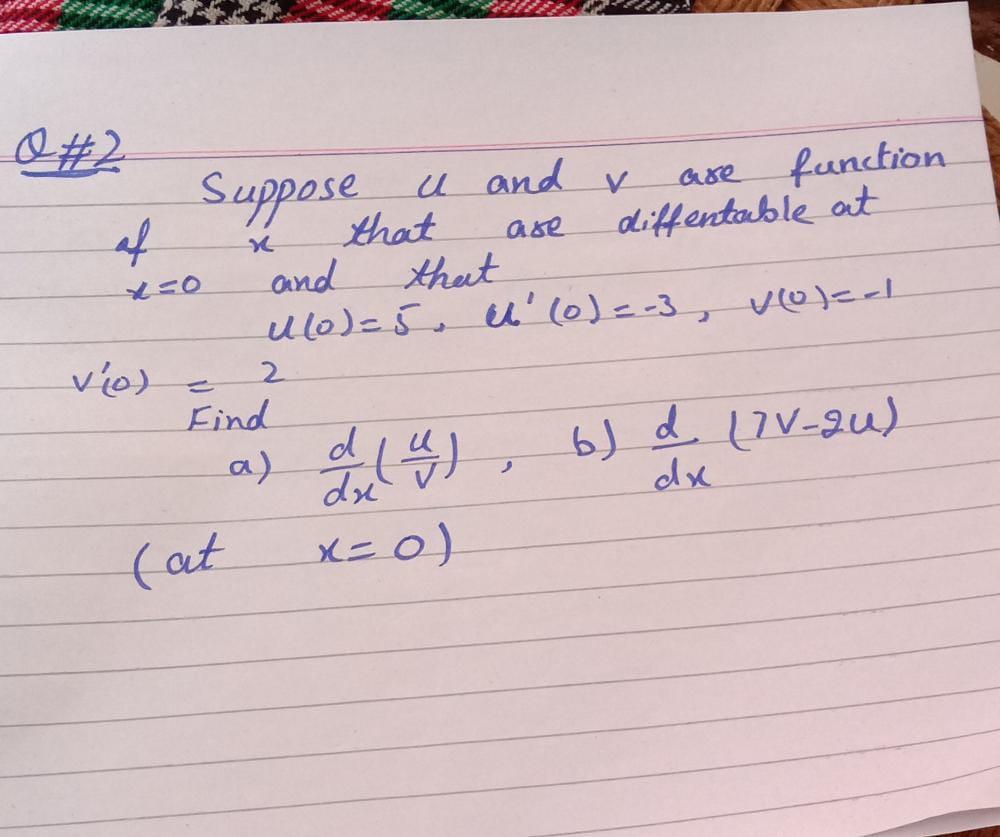 Q#2
Suppose u and v are function
of x that are diffentable at
x=0 and that
u(0)=5, u'(0)=-3, v(0)=-1
v'(0) = 2
Find
a) d/dx (u/v), b) d/dx (7v-2u)
(at x=0)